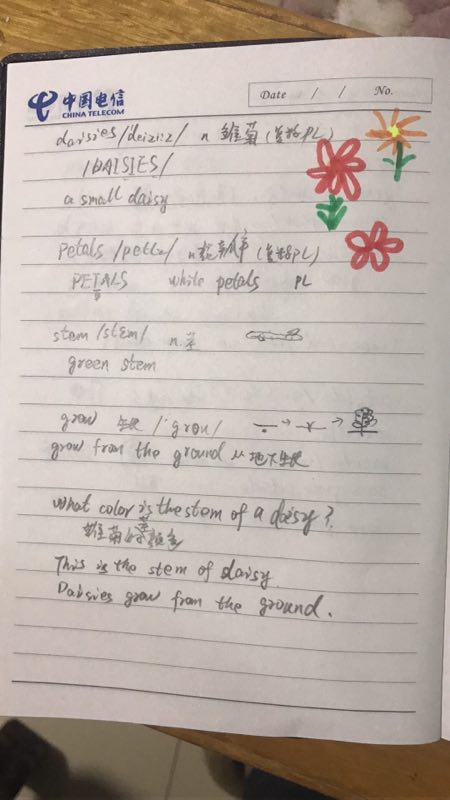 中国电信
CHINA TELECOM
Date / / No.
daisies /deiziːz/ n 雏菊(复数PL)
/DAISIES/
a small daisy
petals / n 花瓣(复数PL)
PETALS white petals PL
stem /stem/ n.茎
green stem
grow 生长 /'grou/
grow from the ground 从地下生长
What color is the stem of a daisy?
雏菊 茎 颜色
This is the stem of daisy
Daisies grow from the ground.